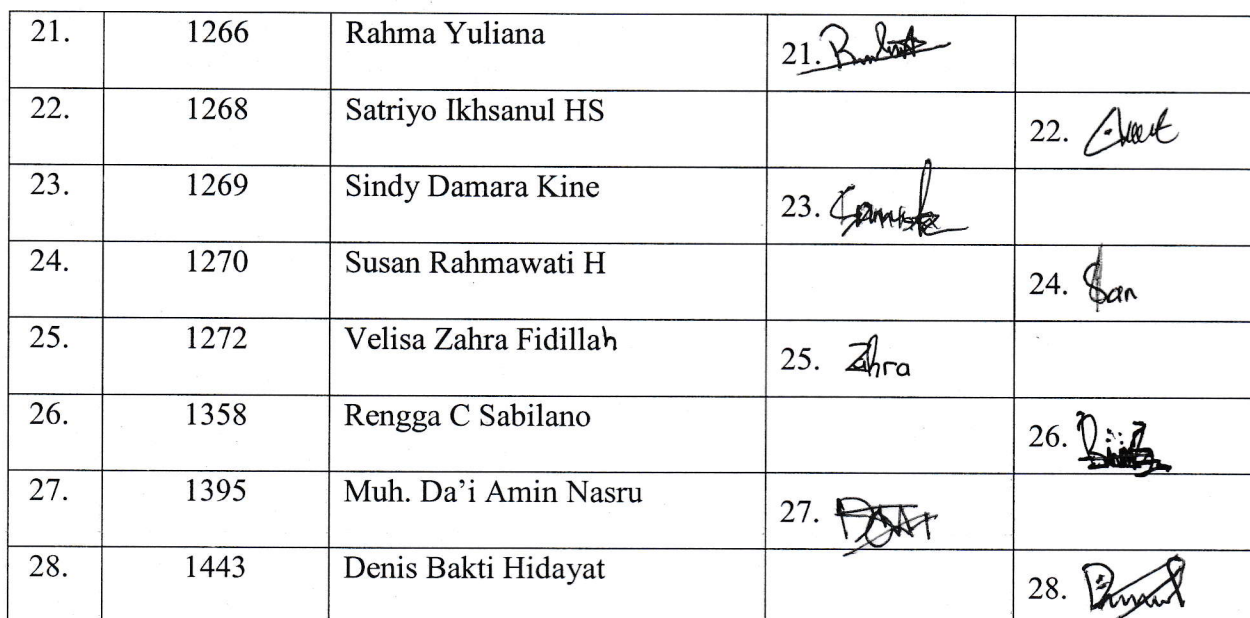 21. 1266 Rahma Yuliana 21.
22. 1268 Satriyo Ikhsanul HS 22.
23. 1269 Sindy Damara Kine 23.
24. 1270 Susan Rahmawati H 24. San
25. 1272 Velisa Zahra Fidillah 25. Zahra
26. 1358 Rengga C Sabilano 26.
27. 1395 Muh. Da'i Amin Nasru 27.
28. 1443 Denis Bakti Hidayat 28.